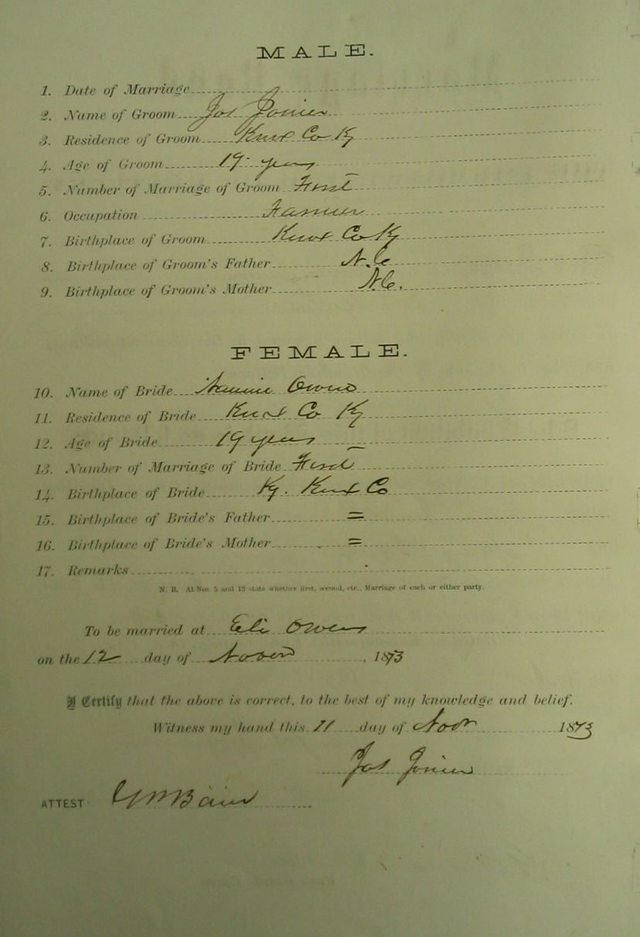 MALE.
1. Date of Marriage
2. Name of Groom Jas Joiner
3. Residence of Groom Knox Co Ky
4. Age of Groom 19 years
5. Number of Marriage of Groom First
6. Occupation Farmer
7. Birthplace of Groom Knox Co Ky
8. Birthplace of Groom's Father N. C
9. Birthplace of Groom's Mother N. C.
FEMALE.
10. Name of Bride Owens
11. Residence of Bride Knox Co Ky
12. Age of Bride 19 years
13. Number of Marriage of Bride First
14. Birthplace of Bride Ky. Knox Co
15. Birthplace of Bride's Father =
16. Birthplace of Bride's Mother =
17. Remarks
N. B. At Nos. 5 and 13 state whether first, second, etc., Marriage of each or either party.
To be married at Eli Owens
on the 12 day of , 1873
I Certify that the above is correct, to the best of my knowledge and belief.
Witness my hand this 11 day of 1873
Jas Joiner
ATTEST